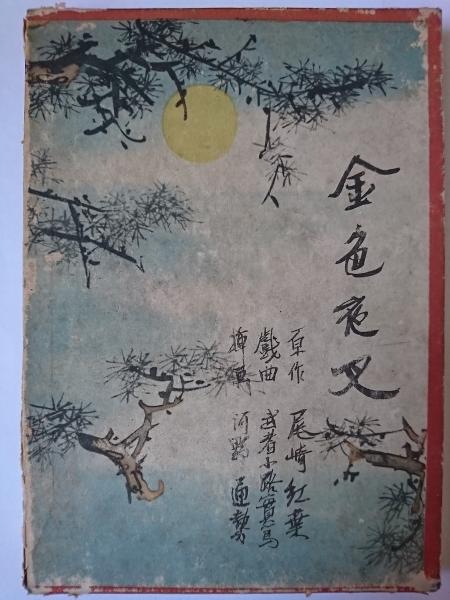 金色夜叉
原作 尾崎紅葉
戯曲 武者小路實篤
挿画 河野通勢